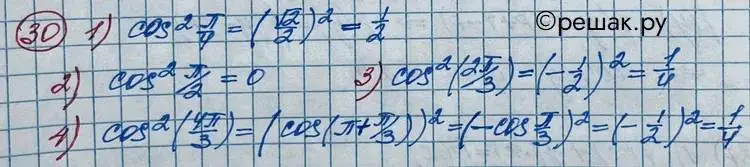 30 1) cos² π/4 = (√2/2)² = 1/2 ©решак.ру
2) cos² π/2 = 0 3) cos²(2π/3) = (-1/2)² = 1/4
4) cos²(4π/3) = (cos(π+π/3))² = (-cos π/3)² = (-1/2)² = 1/4